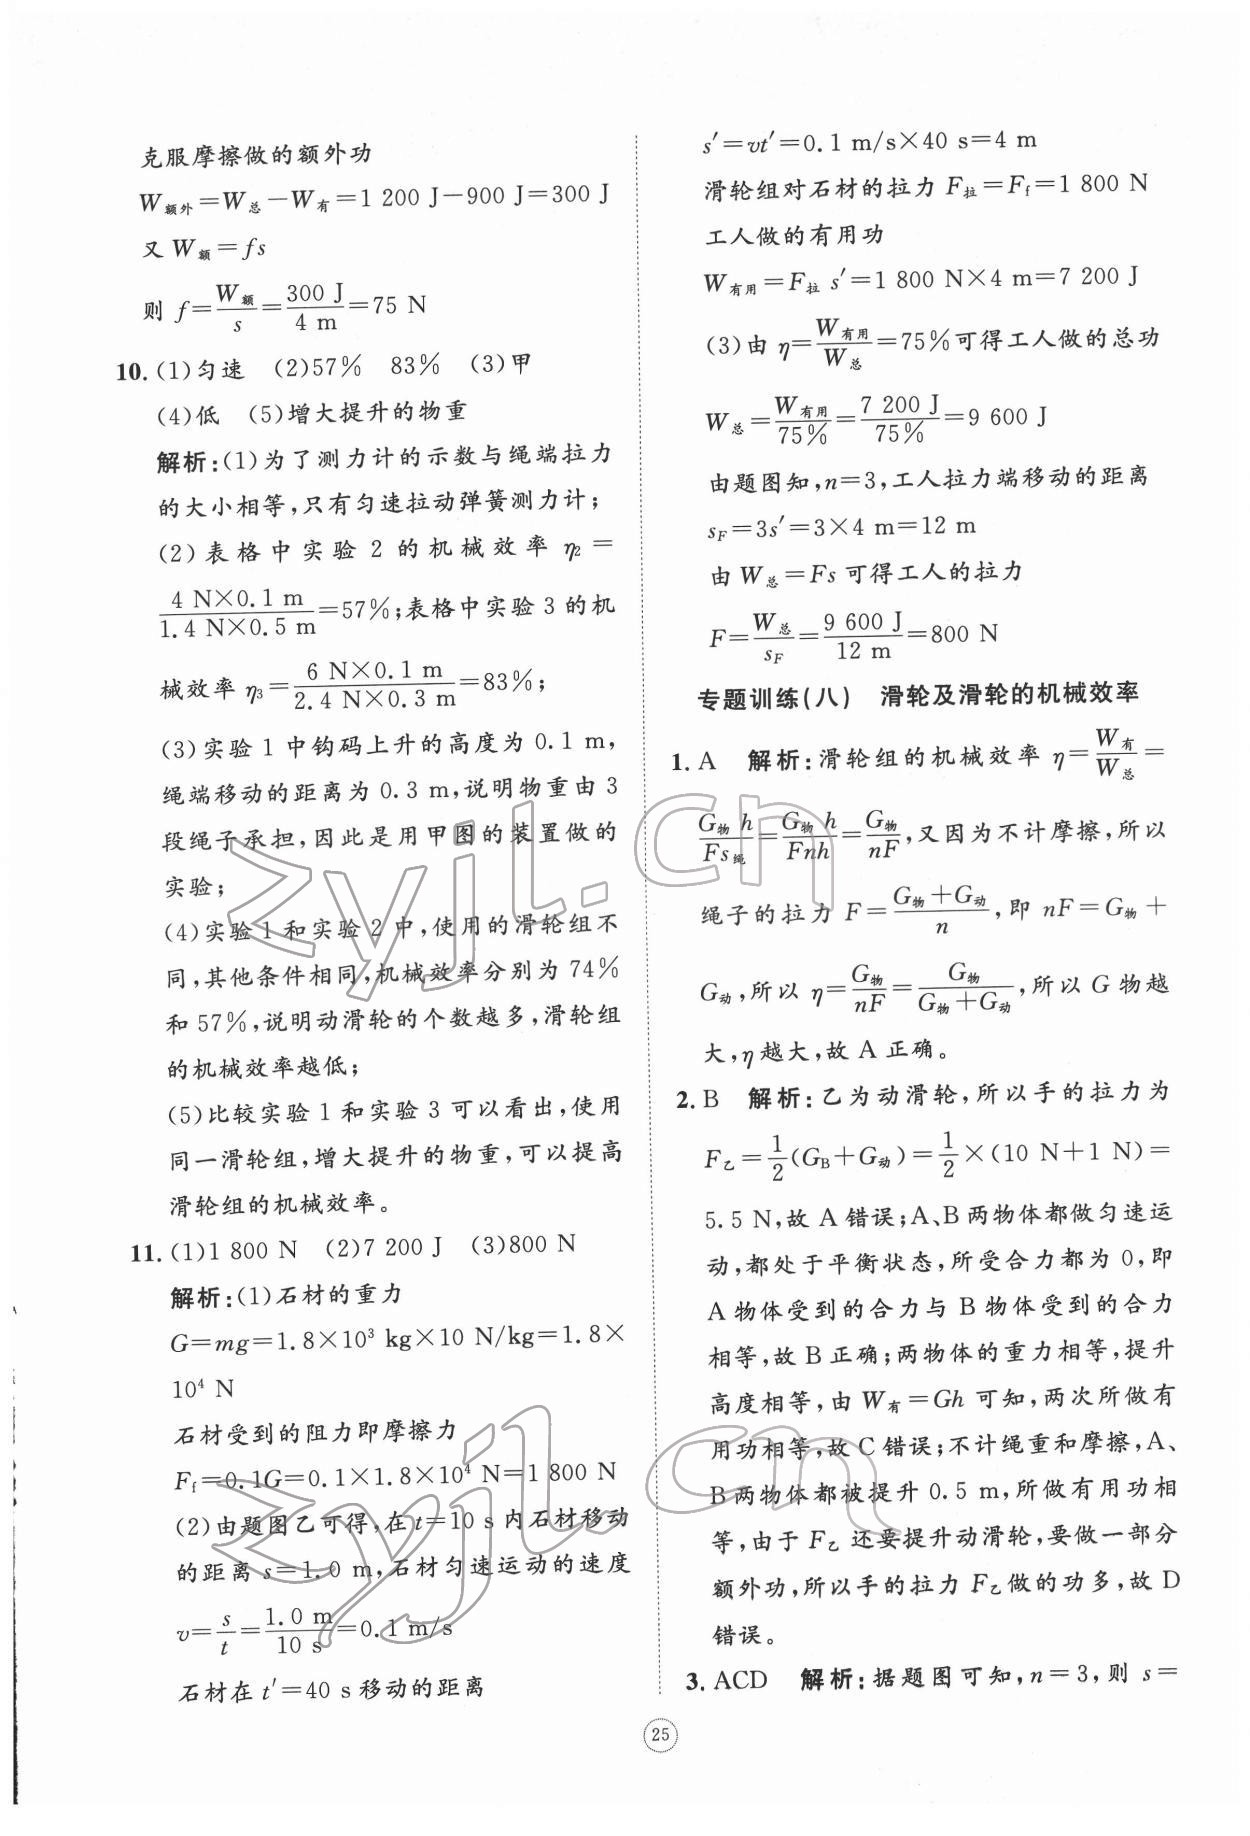 克服摩擦做的额外功
W额外=W总-W有=1 200 J-900 J=300 J
又 W额=fs
则 f=W额/s=300 J/4 m=75 N
10. (1)匀速 (2)57% 83% (3)甲
(4)低 (5)增大提升的物重
解析:(1)为了测力计的示数与绳端拉力
的大小相等,只有匀速拉动弹簧测力计;
(2)表格中实验 2 的机械效率 η2=
4 N×0.1 m/1.4 N×0.5 m=57%;表格中实验 3 的机
械效率 η3=6 N×0.1 m/2.4 N×0.3 m=83%;
(3)实验 1 中钩码上升的高度为 0.1 m,
绳端移动的距离为 0.3 m,说明物重由 3
段绳子承担,因此是用甲图的装置做的
实验;
(4)实验 1 和实验 2 中,使用的滑轮组不
同,其他条件相同,机械效率分别为 74%
和57%,说明动滑轮的个数越多,滑轮组
的机械效率越低;
(5)比较实验 1 和实验 3 可以看出,使用
同一滑轮组,增大提升的物重,可以提高
滑轮组的机械效率。
11. (1)1 800 N (2)7 200 J (3)800 N
解析:(1)石材的重力
G=mg=1.8×10³ kg×10 N/kg=1.8×
10⁴ N
石材受到的阻力即摩擦力
Ff=0.1G=0.1×1.8×10⁴ N=1 800 N
(2)由题图乙可得,在 t=10 s 内石材移动
的距离 s=1.0 m,石材匀速运动的速度
v=s/t=1.0 m/10 s=0.1 m/s
石材在 t′=40 s 移动的距离
s′=vt′=0.1 m/s×40 s=4 m
滑轮组对石材的拉力 F拉=Ff=1 800 N
工人做的有用功
W有用=F拉 s′=1 800 N×4 m=7 200 J
(3)由 η=W有用/W总=75%可得工人做的总功
W总=W有用/75%=7 200 J/75%=9 600 J
由题图知,n=3,工人拉力端移动的距离
sF=3s′=3×4 m=12 m
由 W总=Fs 可得工人的拉力
F=W总/sF=9 600 J/12 m=800 N
专题训练(八) 滑轮及滑轮的机械效率
1. A 解析:滑轮组的机械效率 η=W有/W总=
G物 h/Fs绳=G物 h/Fnh=G物/nF,又因为不计摩擦,所以
绳子的拉力 F=G物+G动/n,即 nF=G物+
G动,所以 η=G物/nF=G物/G物+G动,所以 G 物越
大,η越大,故 A 正确。
2. B 解析:乙为动滑轮,所以手的拉力为
F乙=1/2(GB+G动)=1/2×(10 N+1 N)=
5.5 N,故 A 错误;A、B 两物体都做匀速运
动,都处于平衡状态,所受合力都为 0,即
A 物体受到的合力与 B 物体受到的合力
相等,故 B 正确;两物体的重力相等,提升
高度相等,由 W有=Gh 可知,两次所做有
用功相等,故 C 错误;不计绳重和摩擦,A、
B 两物体都被提升 0.5 m,所做有用功相
等,由于 F乙还要提升动滑轮,要做一部分
额外功,所以手的拉力 F乙做的功多,故 D
错误。
3. ACD 解析:据题图可知,n=3,则 s=
25
zyjl.cn
zyjl.cn